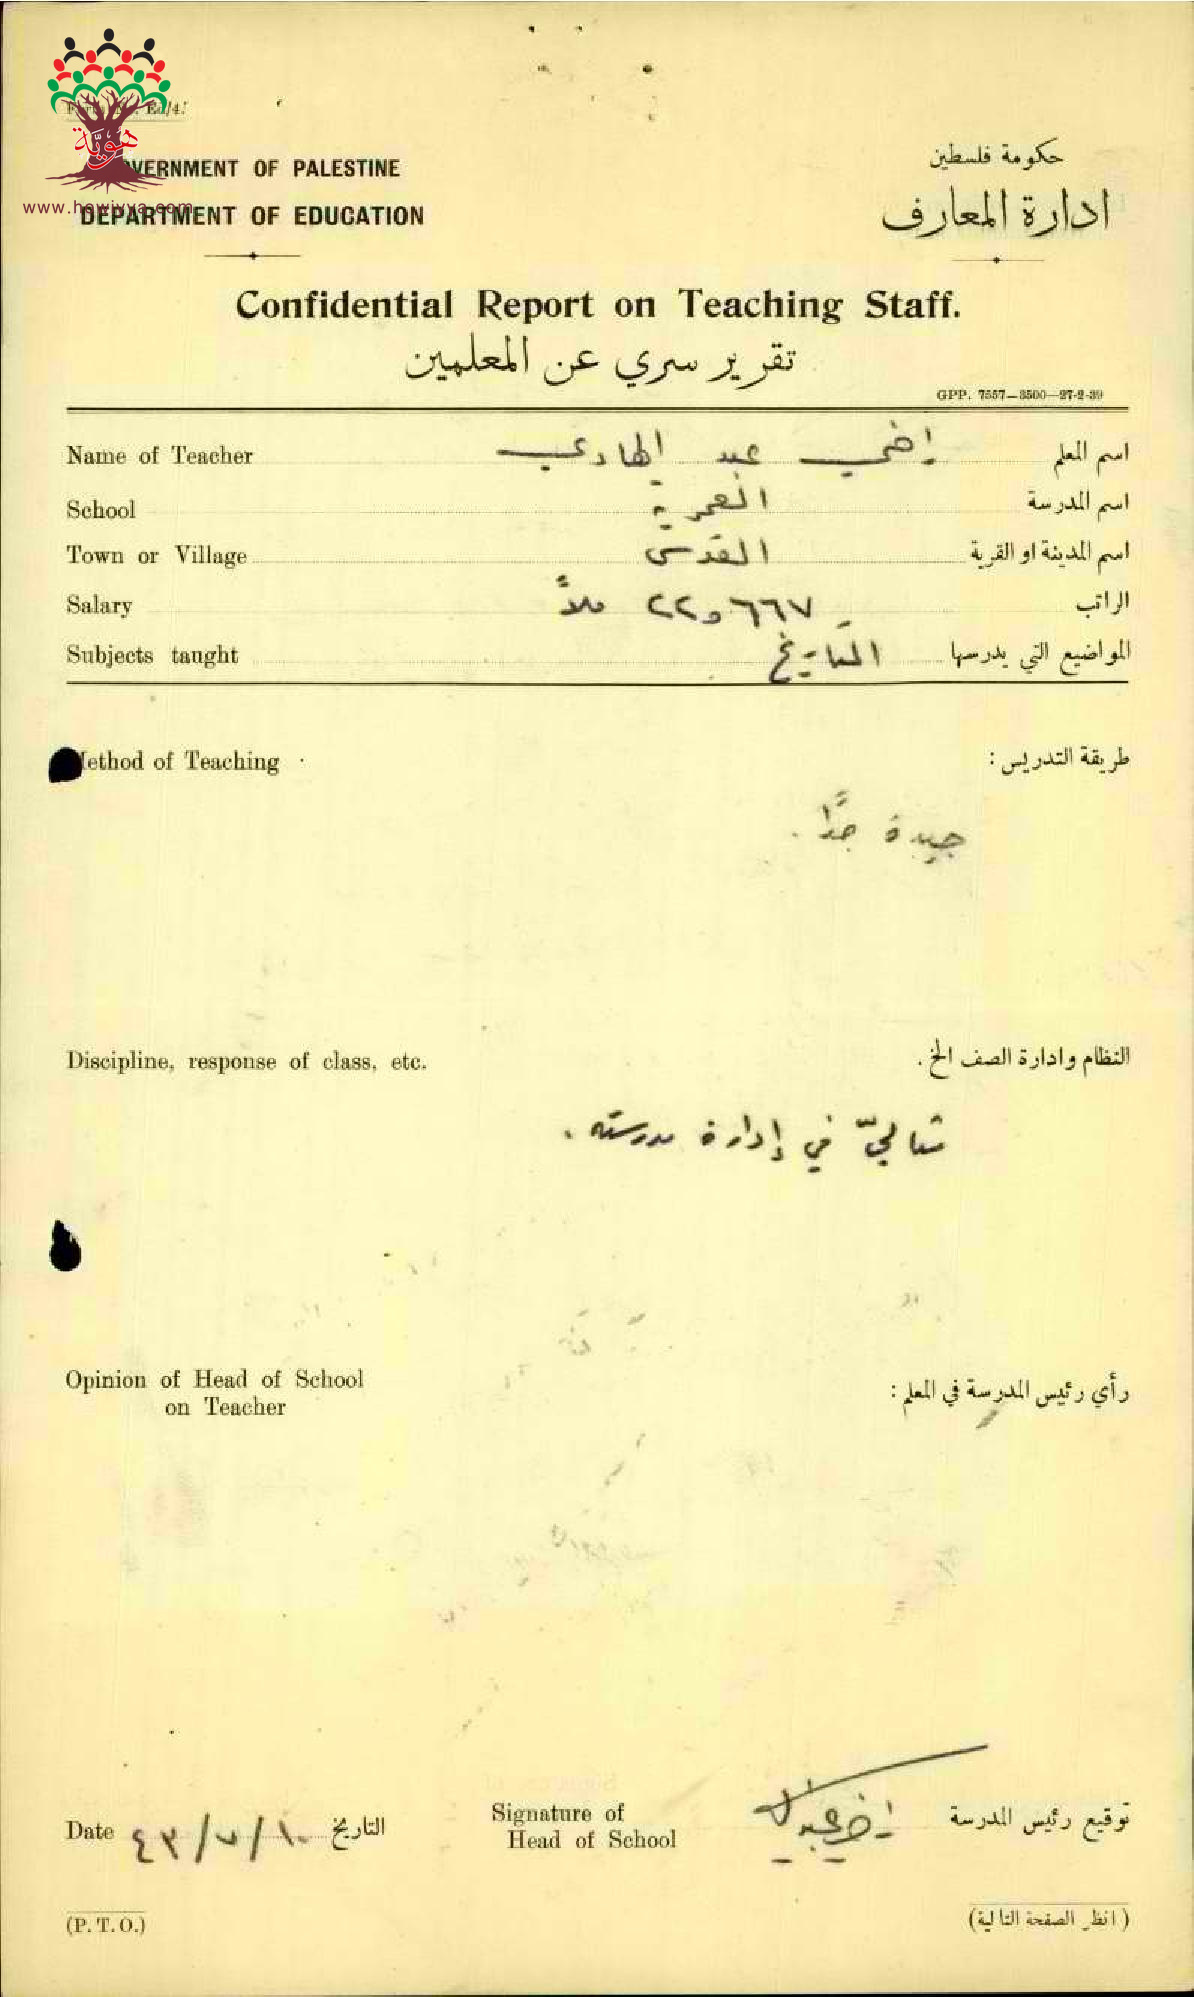 هَوِيَّة
www.howiyya.com
GOVERNMENT OF PALESTINE
DEPARTMENT OF EDUCATION
حكومة فلسطين
ادارة المعارف
Confidential Report on Teaching Staff.
تقرير سري عن المعلمين
GPP. 7557—3500—27-2-39
Name of Teacher عبد الهادي اسم المعلم
School العمرية اسم المدرسة
Town or Village القدس اسم المدينة او القرية
Salary ٢٢٫٦٦٧ ملاً الراتب
Subjects taught التاريخ المواضيع التي يدرسها
Method of Teaching طريقة التدريس :
جيدة جدًّا .
Discipline, response of class, etc. النظام وادارة الصف الخ .
في إدارة مدرسته .
Opinion of Head of School
on Teacher
رأي رئيس المدرسة في المعلم :
Date ١٠/٧/٤٣ التاريخ
Signature of
Head of School
توقيع رئيس المدرسة
(P. T. O.)
( انظر الصفحة التالية )